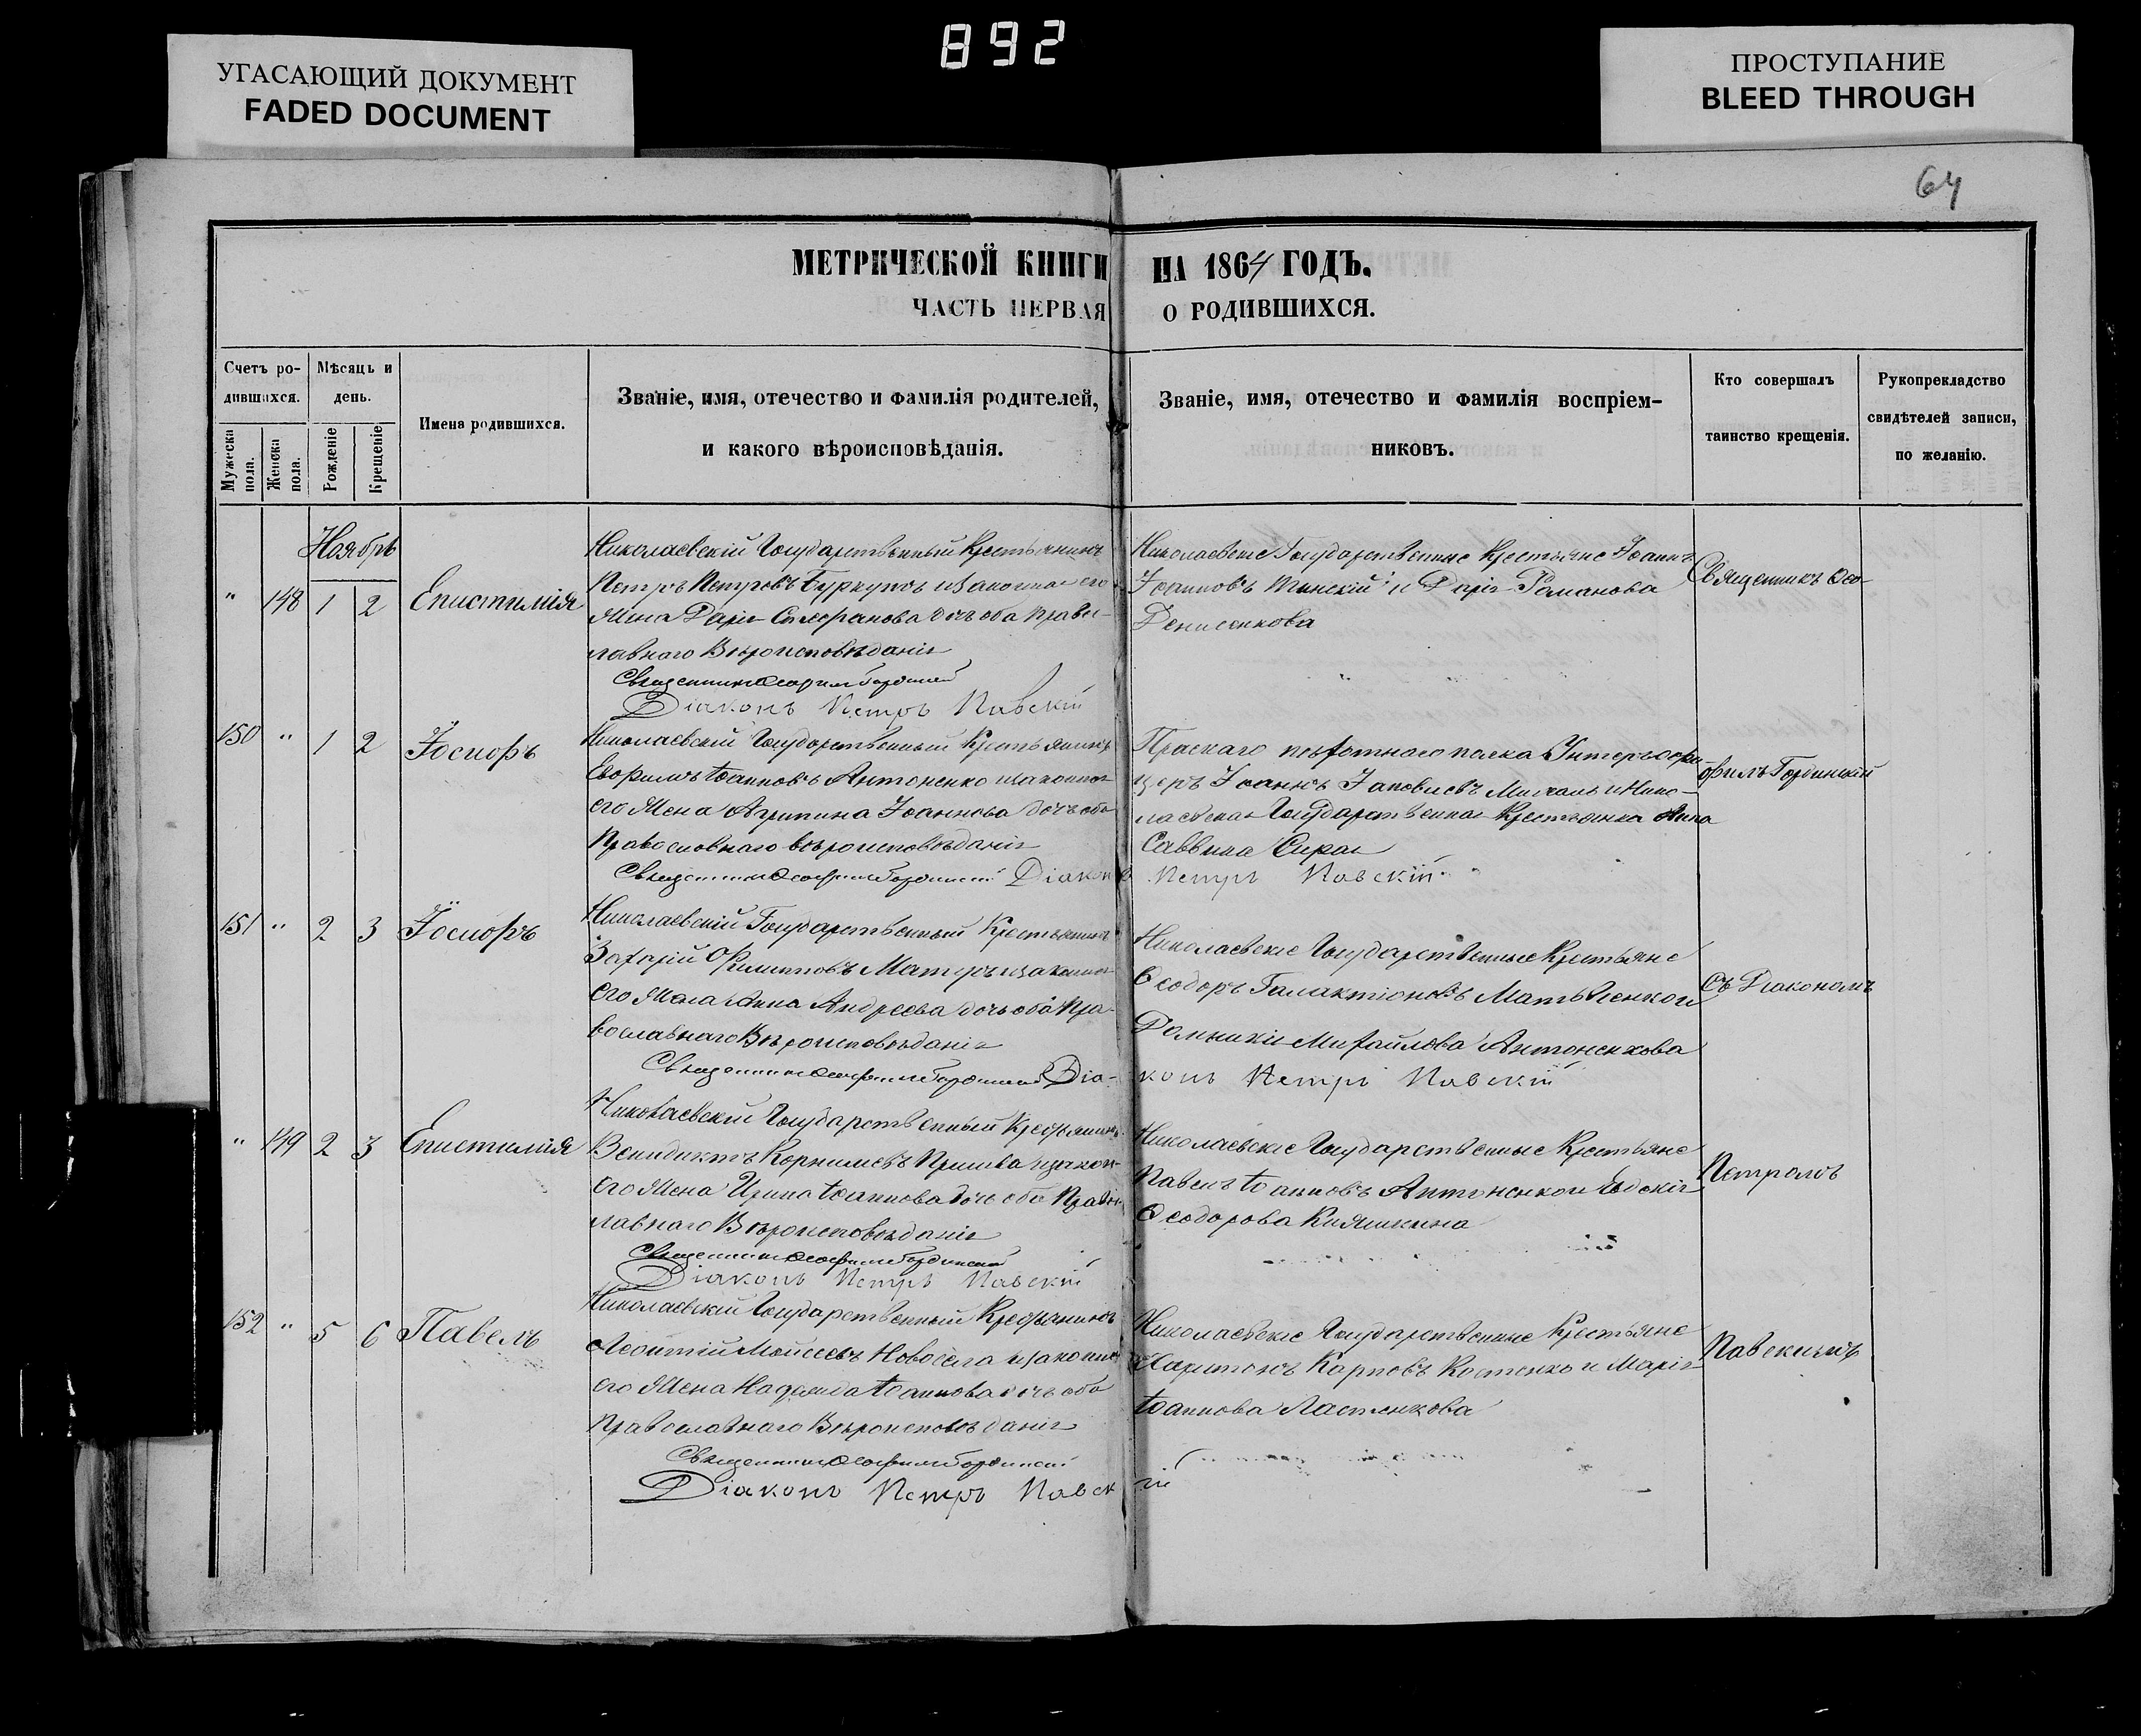 892
УГАСАЮЩИЙ ДОКУМЕНТ
FADED DOCUMENT
ПРОСТУПАНИЕ
BLEED THROUGH
64
МЕТРИЧЕСКОЙ КНИГИ НА 1864 ГОДЪ.
ЧАСТЬ ПЕРВАЯ О РОДИВШИХСЯ.
Счетъ ро-
дившихся.
Мужеска
пола.
Женска
пола.
Мѣсяцъ и
день.
Рожденіе
Крещеніе
Имена родившихся.
Званіе, имя, отечество и фамилія родителей,
и какого вѣроисповѣданія.
Званіе, имя, отечество и фамилія воспріем-
никовъ.
Кто совершалъ
таинство крещенія.
Рукоприкладство
свидѣтелей записи,
по желанію.
Ноябрь
" 148 1 2 Епистимія
Николаевскій Государственный Крестьянинъ
Петръ Петровъ законная его
жена Дарія Стефанова дочь оба право-
лавнаго Вѣроисповѣданія
Священникъ
Діаконъ Петръ Павскій
Николаевскіе Государственные Крестьяне Іоаннъ
Іоанновъ и Дарія Романова
Денисенкова
Священникъ Ѳео-
150 " 1 2 Іосифъ
Николаевскій Государственный Крестьянинъ
Іоанновъ Антоненко законная
его жена Агрипина Іоаннова дочь оба
Православнаго вѣроисповѣданія
Священникъ Діаконъ Петръ Павскій
пѣхотнаго полка Унтеръ офи-
церъ Іоаннъ и Нико-
лаевская Государственная Крестьянка Анна
Саввина
филъ Гординскій
151 " 2 3 Іосифъ
Николаевскій Государственный Крестьянинъ
Захарій Филипповъ законная
его жена Анна Андреева дочь оба Пра-
вославнаго Вѣроисповѣданія
Священникъ Діа-конъ Петръ Павскій
Николаевскіе Государственные Крестьяне
Ѳеодоръ Галактіоновъ и
Домникія Михайлова Антоненкова
Съ Діакономъ
" 149 2 3 Епистимія
Николаевскій Государственный Крестьянинъ
Венидиктъ Корнилиевъ
его жена Ирина Іоаннова дочь оба Правос-
лавнаго Вѣроисповѣданія
Священникъ
Діаконъ Петръ Павскій
Николаевскіе Государственные Крестьяне
Павелъ Іоанновъ Антоненко и Евдокія
Ѳеодорова
Петромъ
152 " 5 6 Павелъ
Николаевскій Государственный Крестьянинъ
Леонтій Моисеевъ законная
его жена Надежда Іоаннова дочь оба
Православнаго Вѣроисповѣданія
Священникъ
Діаконъ Петръ Павскій
Николаевскіе Государственные Крестьяне
Харитонъ Карповъ Костенко и Марія
Іоаннова Ластенкова
Павскимъ